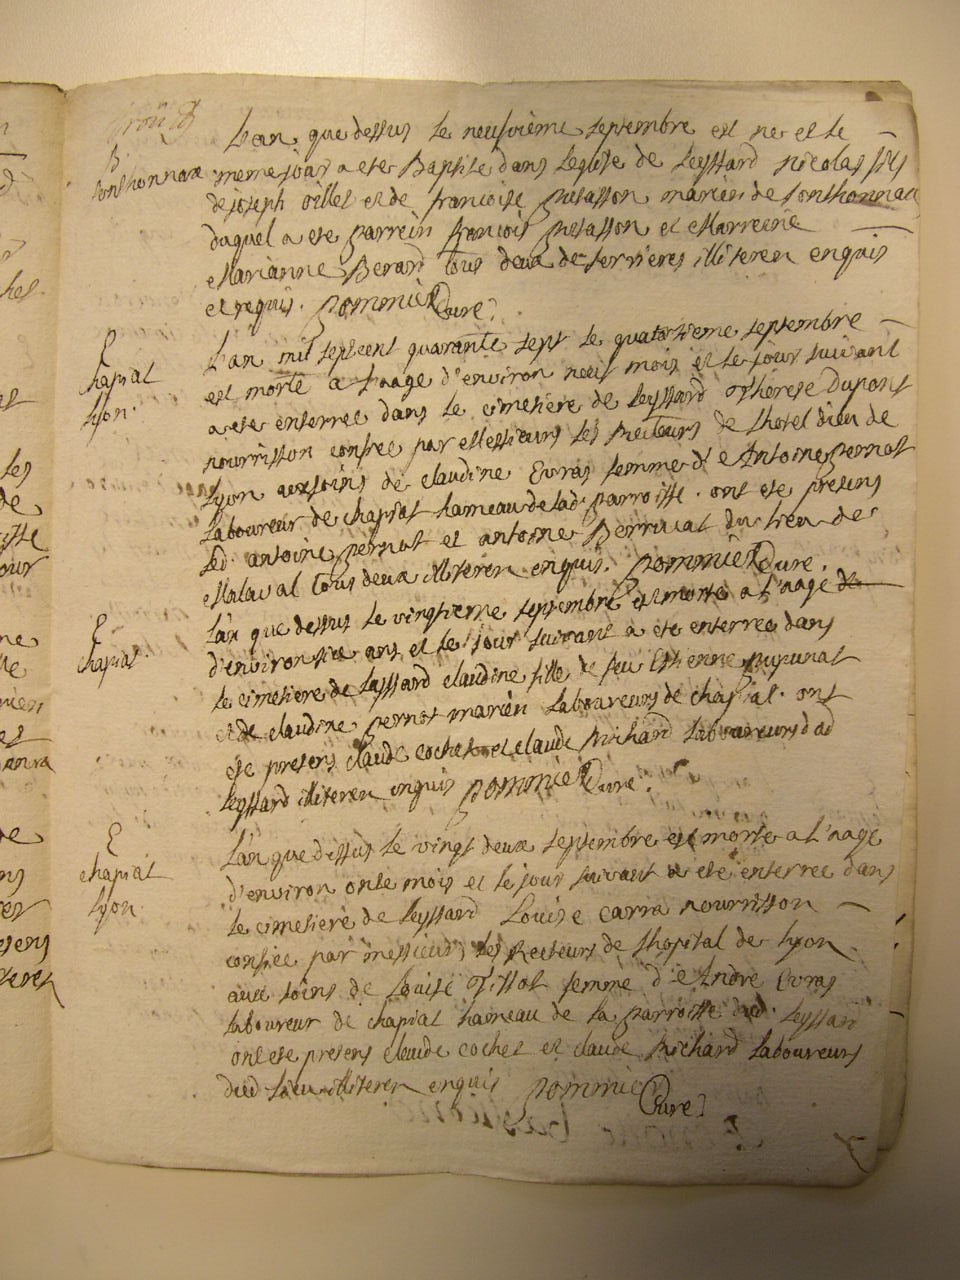 L'an que dessus le neufvième septembre est ne et le
B.
Sonthonnax
meme jour a ete Baptise dans l'eglise de Leyssard nicolas fils
de joseph oillet et de francoise putasson mariés de Sonthonnax
duquel a ete parrein francois putasson et Marreine
Marianne Berard tous deux de serrieres illiteren enquis
et requis. pommier Curé
L'an mil septcent quarante sept le quatorzieme septembre
E
chapiat
Lyon.
est morte a l'aage d'environ neuf mois et le jour suivant
a ete enterree dans le cimetiere de Leyssard Therese Dupont
nourrisson confiee par Messieurs les Recteurs de l'hotel dieu de
Lyon aux soins de claudine Evras femme d'e Antoine pernot
Laboureur de chapiat hameau de lad. parroisse. ont ete presens
led. antoine pernot et antoine Berrucat du lieu de
Malaval tous deux illiteren enquis. pommier Curé.
L'an que dessus le vingtieme septembre est morte a l'aage de
E
chapiat.
d'environ six ans et le jour suivant a ete enterree dans
le cimetiere de Leyssard claudine fille de feu Estienne pupunat
et de claudine pernot mariés Laboureurs de chapiat. ont
ete presens claude cochet et claude Richard Laboureurs dud
Leyssard illiteren enquis pommier Curé.
L'an que dessus le vingt deux septembre est morte a l'aage
E
chapiat
Lyon.
d'environ onze mois et le jour suivant a ete enterree dans
le cimetiere de Leyssard Louise carra nourrisson
confiée par messieurs les Recteurs de l'hopital de Lyon
aux soins de Louise Tissot femme d'e Andre Evras
laboureur de chapiat hameau de la parroisse dud. Leyssard
ont ete presens claude cochet et claude Richard Laboureurs
dud lieu illiteren enquis pommier
Curé